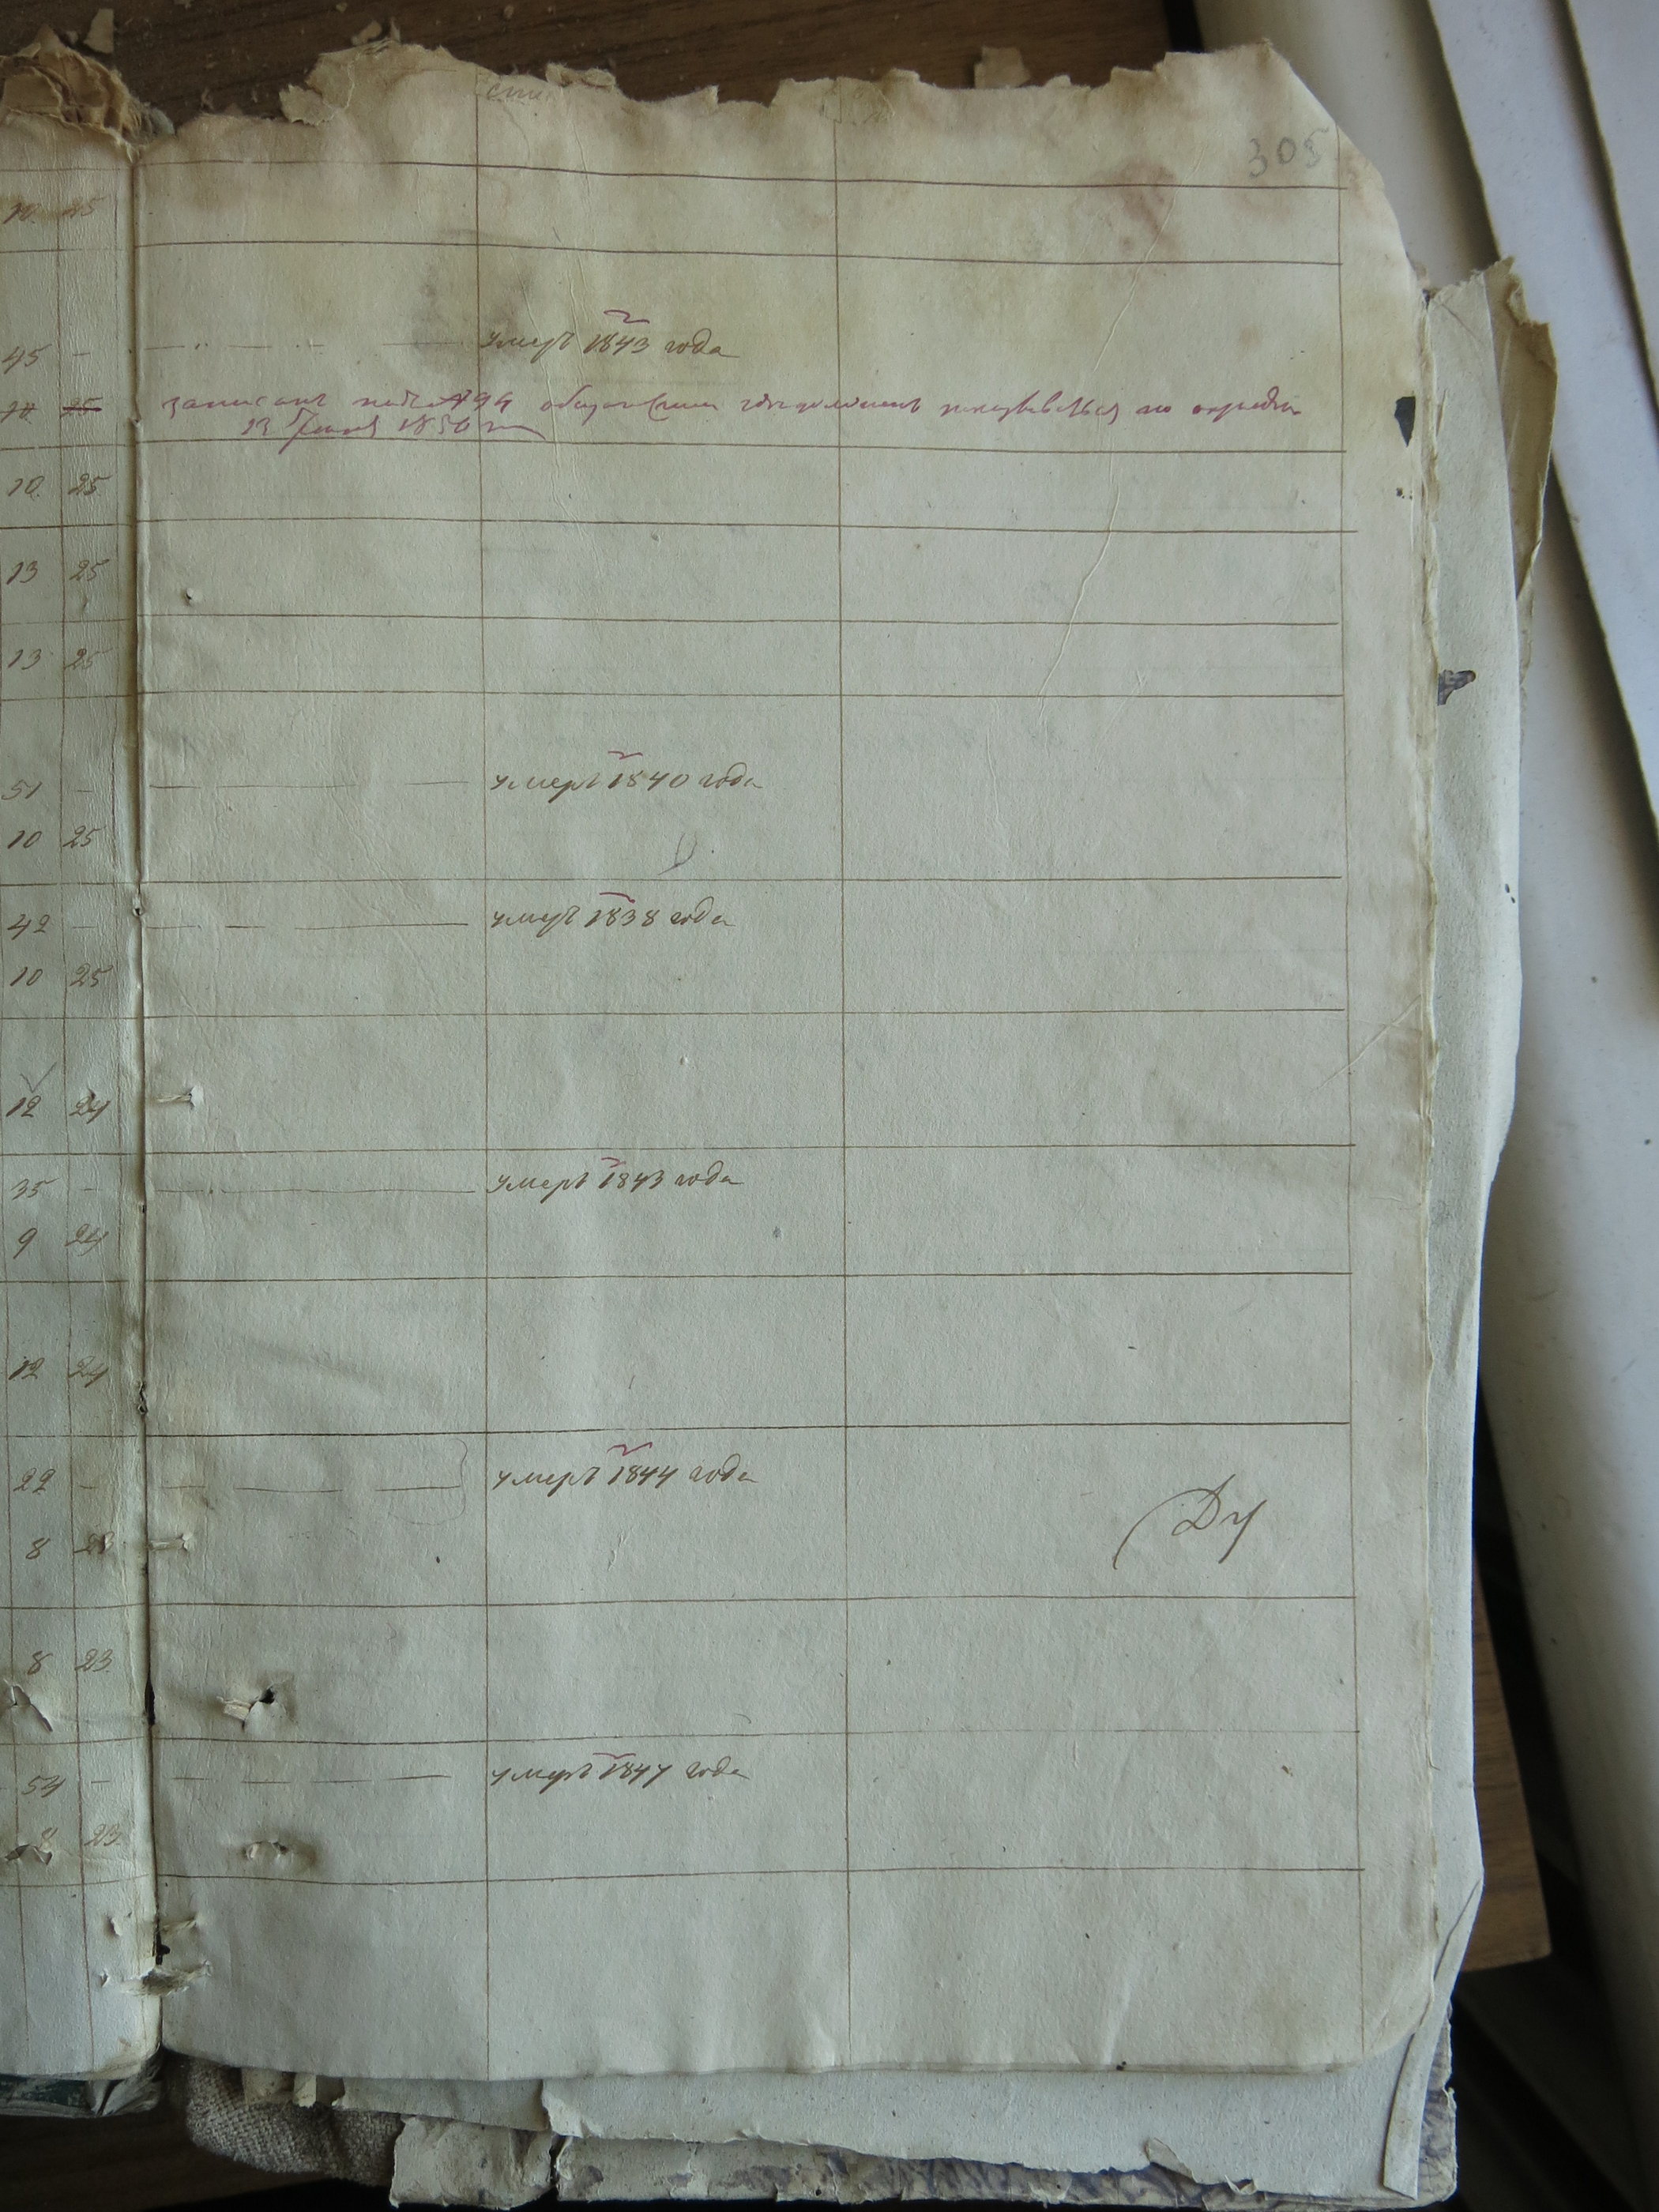 305
10 25
45 — умеръ 1843 года
10 25 записанъ
13 1850
10 25
13 25
13 25
51 — умеръ 1840 года
10 25
42 — умеръ 1838 года
10 25
12 24
35 — умеръ 1843 года
9 24
12 24
22 — умеръ 1844 года
Ду
8 23
8 23
54 — умеръ 1847 года
8 23